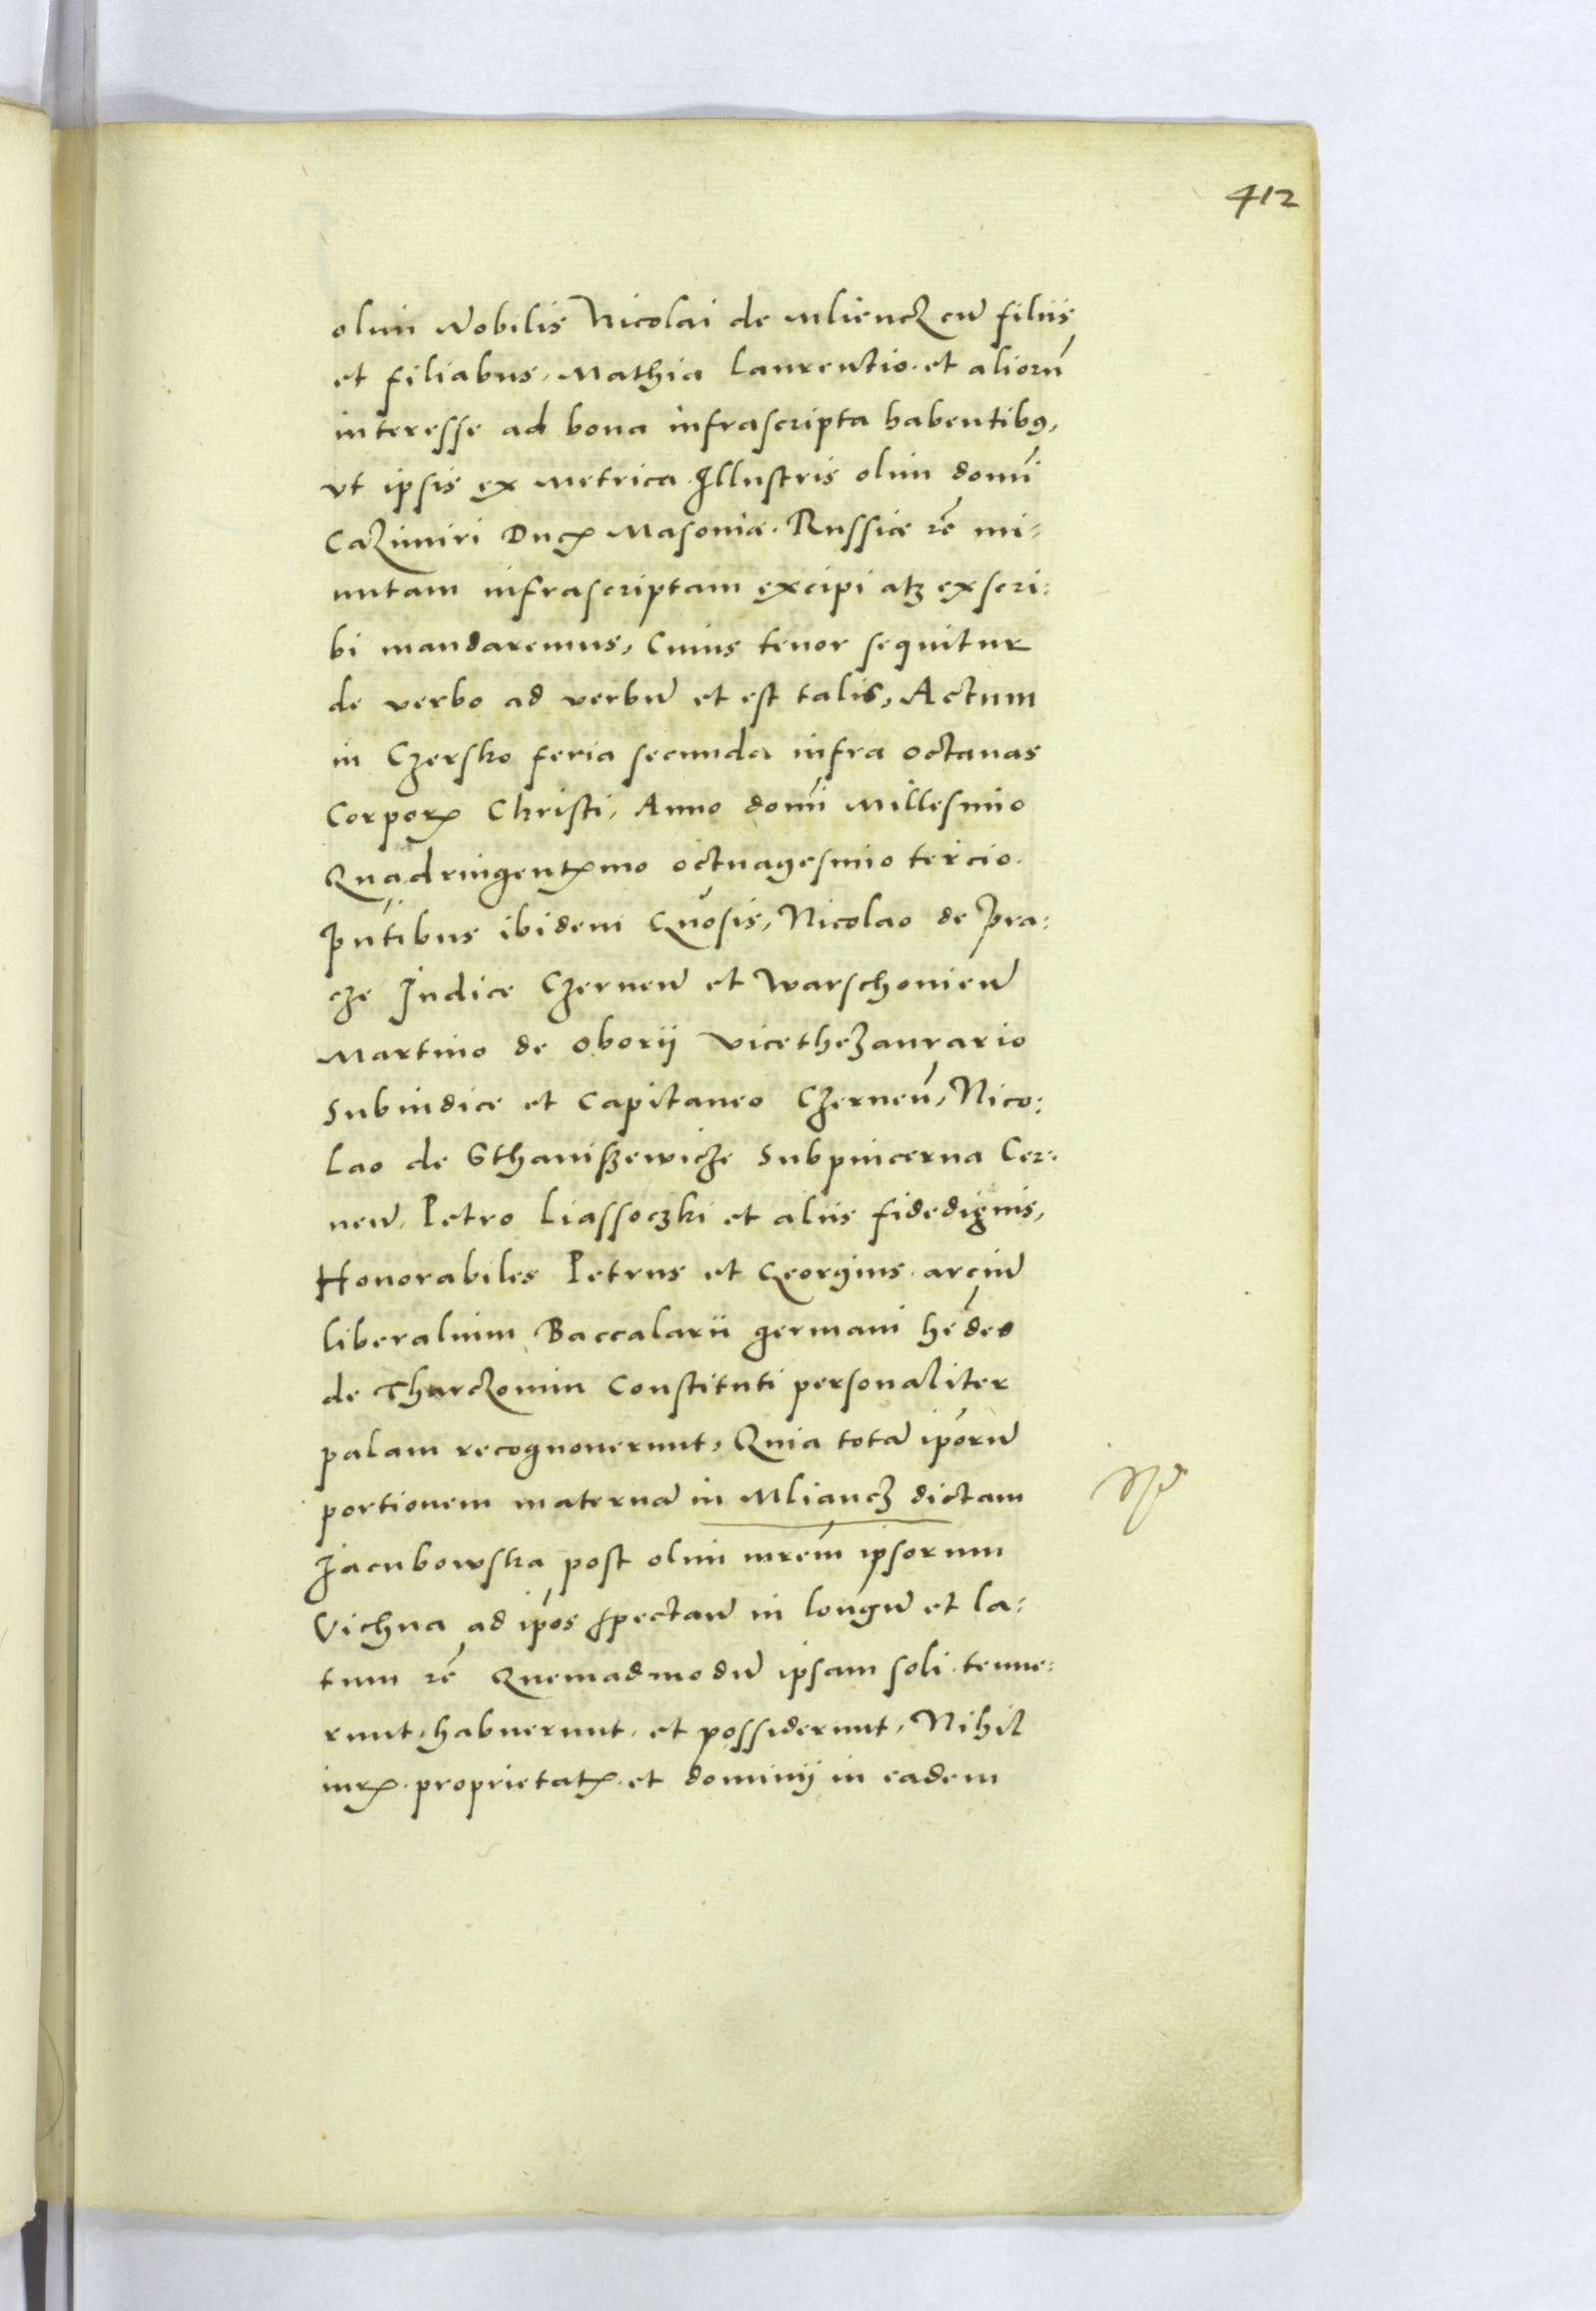 412
olim Nobilis Nicolai de Mliencz cũ filiis
et filiabus, Mathia Laurentio et aliorũ
interesse ad bona infrascripta habentibꝰ,
vt ipsis ex Metrica Illustris olim domĩ
Cazimiri Ducꝭ Masouiæ Russiæ rẽ mi:
nutam infrascriptam excipi atqꝫ exscri:
bi mandaremus, Cuius tenor sequitur
de verbo ad verbũ et est talis, Actum
in Czersko feria secunda infra octauas
Corporꝭ Christi, Anno domĩ Millesimo
Quadringentꝭmo octuagesimo tercio.
Pñtibus ibidem Gñosis, Nicolao de Pra:
cze Iudice Czerneñ et Warschouieñ
Martino de Oborij Vicethezaurario
Subiudice et Capitaneo Czerneñ, Nico:
lao de Sthaniszewicze Subpincerna Cer:
neñ, Petro Liassoczki et aliis fidedignis,
Honorabiles Petrus et Georgius arciũ
liberalium Baccalarii germani hẽdes
de Tharczomin Constituti personaliter
palam recognouerunt, Quia totã ipõrũ
portionem maternã in Mliancz dictam
Jacubowska post olim mrẽm ipsorum
Vichna ad ipõs spectañ in longũ et la:
tum rẽ Quemadmodũ ipsam soli tenue:
runt, habuerunt, et possiderunt, Nihil
iurꝭ proprietatꝭ et dominij in eadem